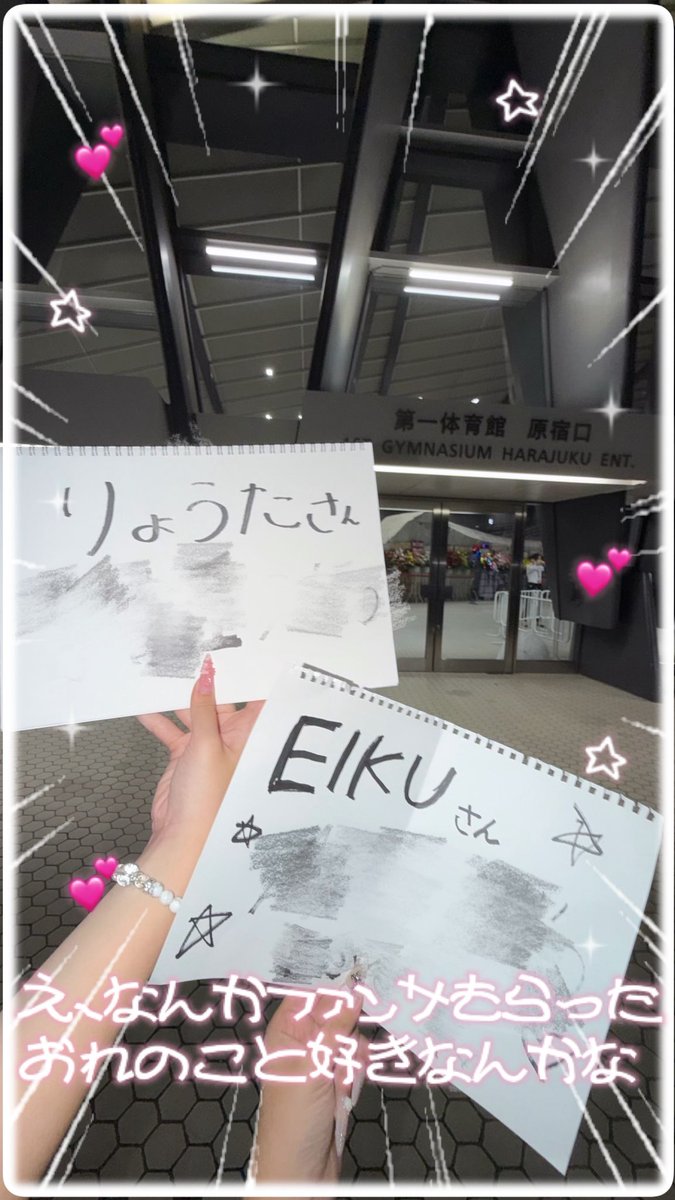 第一体育館 原宿口
1ST GYMNASIUM HARAJUKU ENT.
りょうたさん
EIKUさん
え、なんかファンサもらった
おれのこと好きなんかな